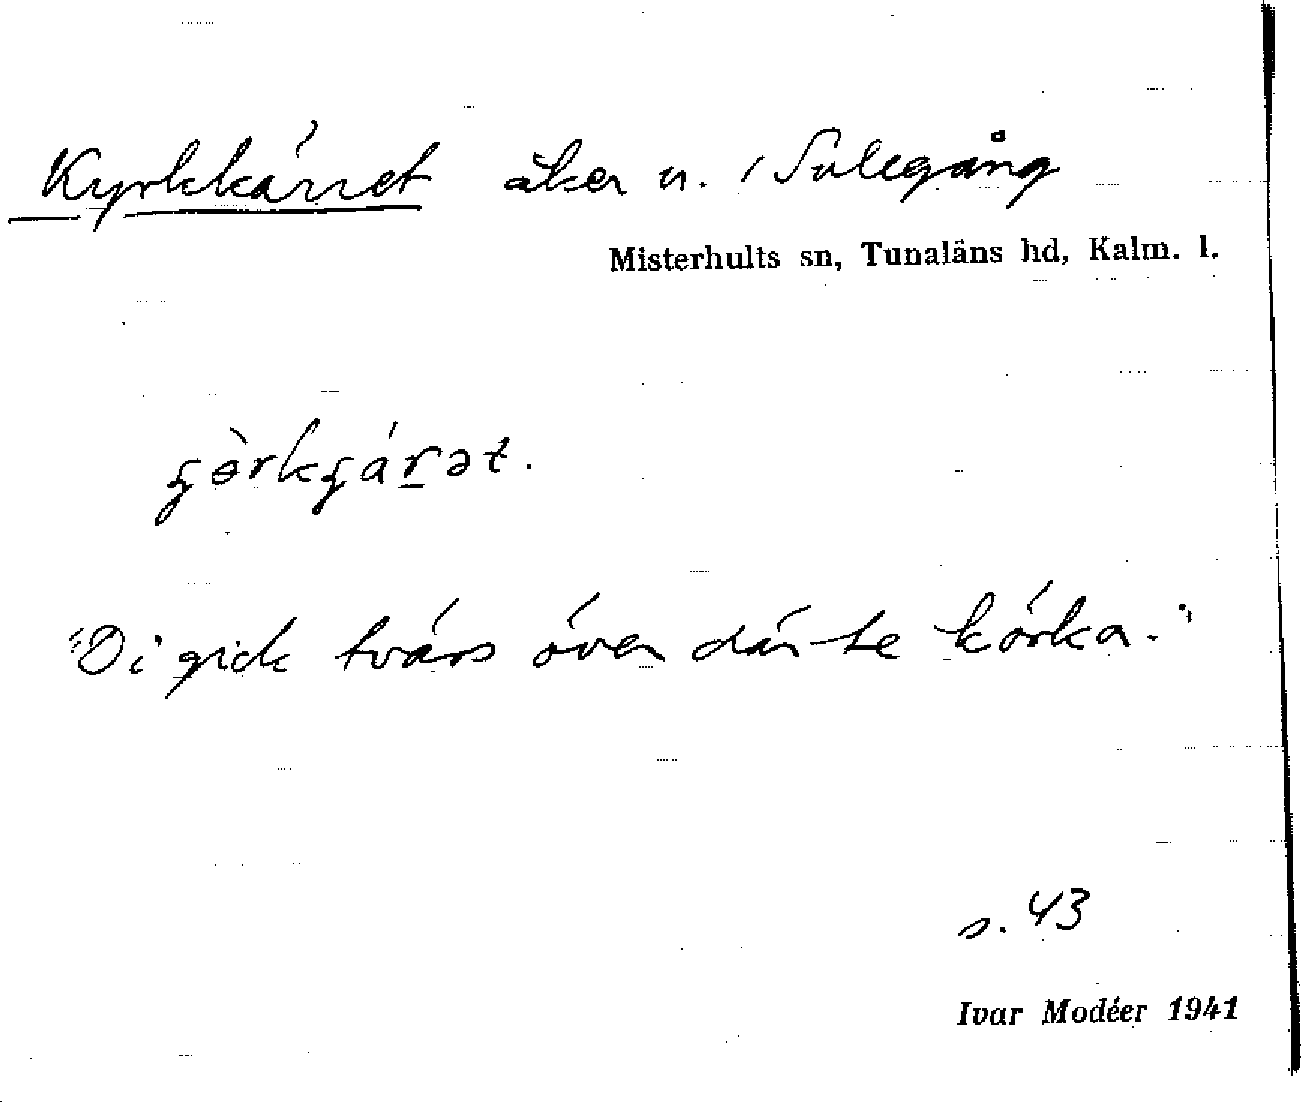 Kyrkkärret åker u. / Sulegång
Misterhults sn, Tunaläns hd, Kalm. l.
ʂɵ̀rkʂár̲ət.
"Di gick tvärs över där te körka."
s. 43
Ivar Modéer 1941